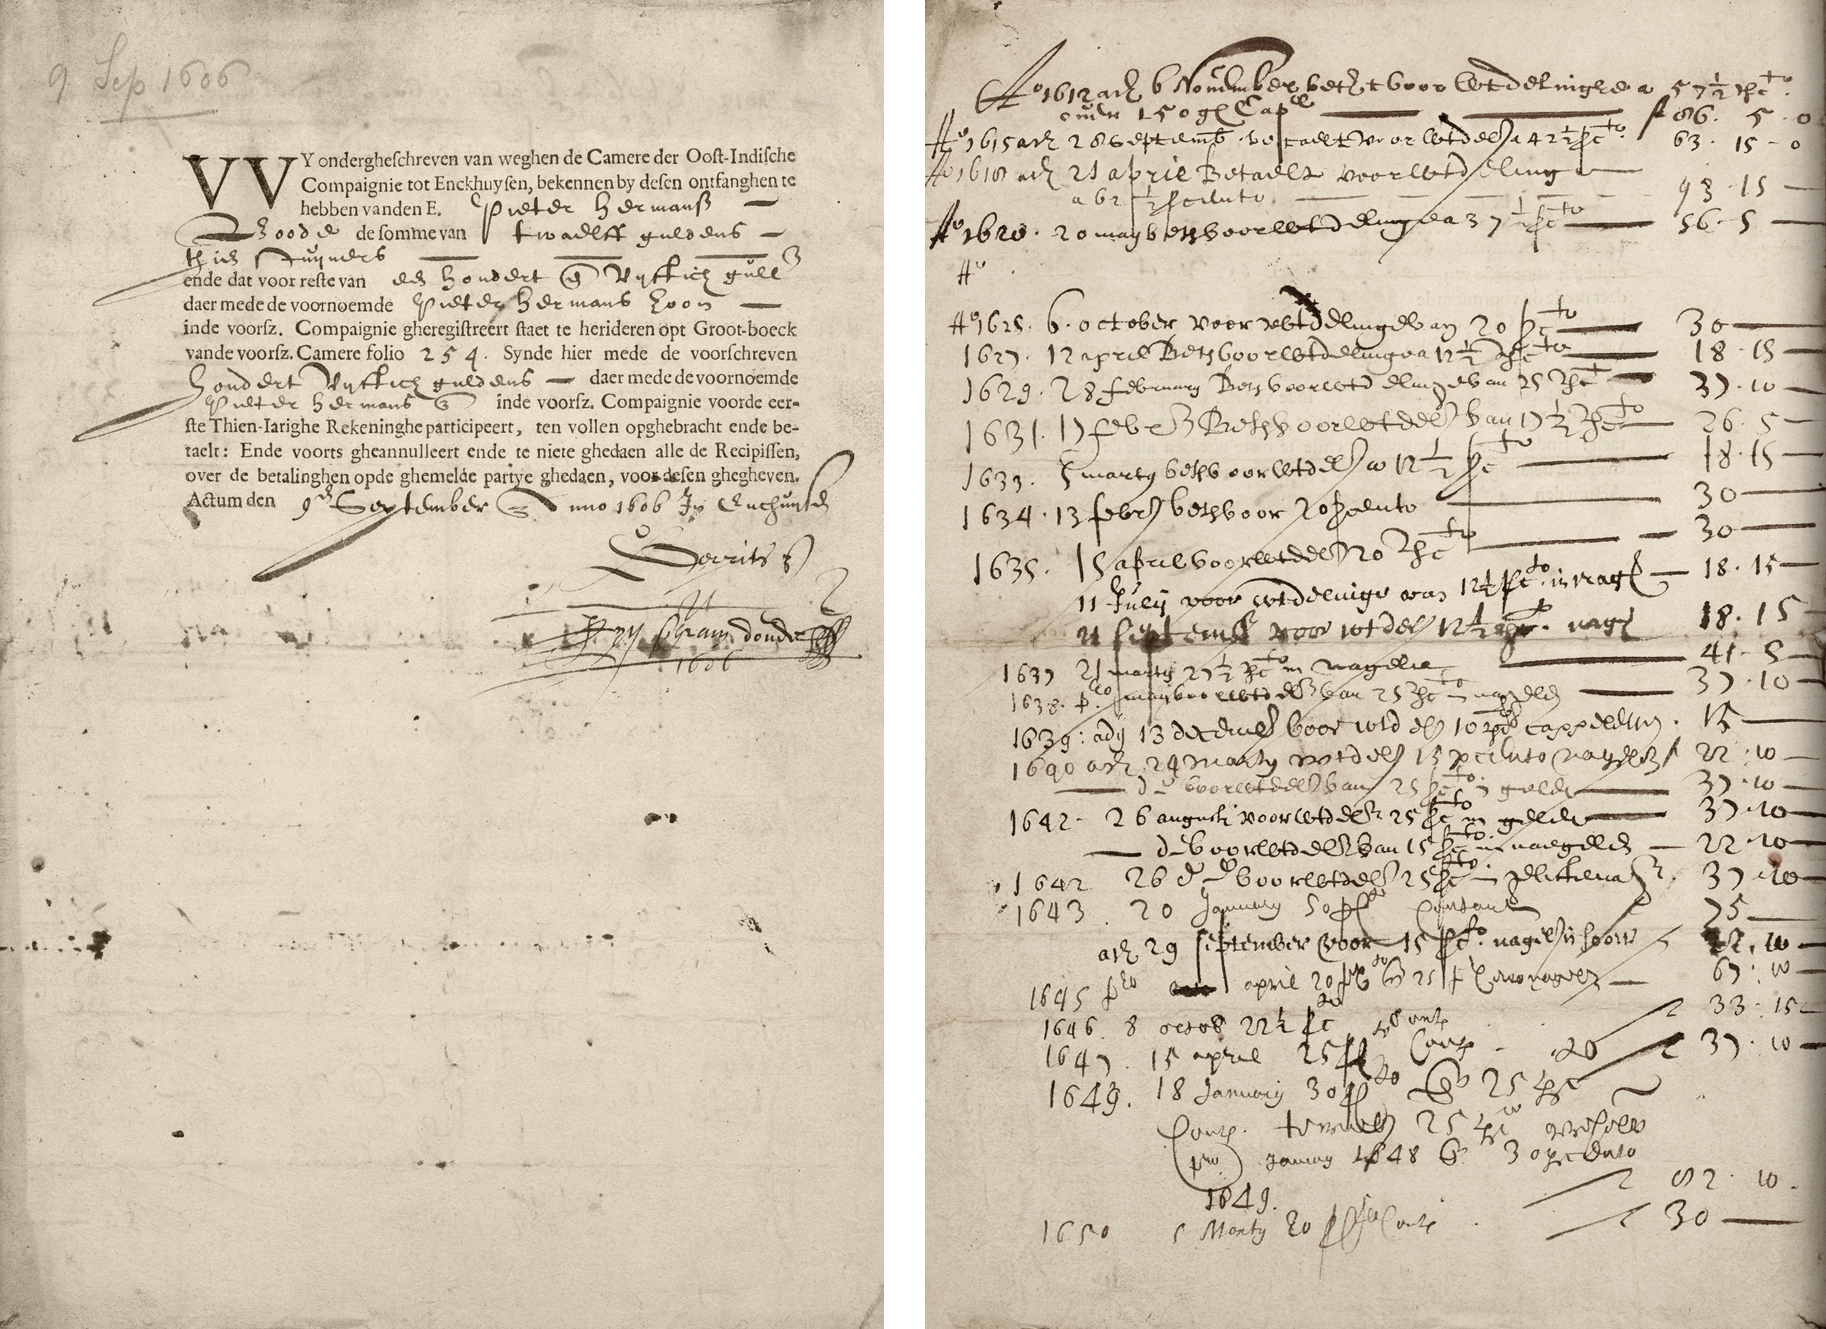 9 Sep 1606
WY ondergheschreven van weghen de Camere der Oost-Indische
Compaignie tot Enckhuysen, bekennen by desen ontfanghen te
hebben vanden E. Pieter hermansz —
Boode de somme van twaelff guldens —
thien stuijvers
ende dat voor reste van een hondert en Vijftich guld
daer mede de voornoemde Pieter hermans zoon —
inde voorsz. Compaignie gheregistreert staet te herideren opt Groot-boeck
vande voorsz. Camere folio 254. Synde hier mede de voorschreven
hondert Vijftich guldens — daer mede de voornoemde
Pieter hermans inde voorsz. Compaignie voorde eer-
ste Thien-Iarighe Rekeninghe participeert, ten vollen opghebracht ende be-
taelt: Ende voorts gheannulleert ende te niete ghedaen alle de Recipissen,
over de betalinghen opde ghemelde partye ghedaen, voor desen ghegheven.
Actum den 9en September Anno 1606 In Enchuysen
1606
Ao 1612 adij 6 November bet voor wtdelinghe a 57½ pcto
over 150 gl Capll — 86. 5. 0
Ao 1615 adij 28 Septemb. betaelt voor wtdel a 42½ pcto 63. 15 - 0
Ao 1618 adij 21 april Betaelt voor wtdeling
a 62½ pcento 93. 15 —
Ao 1620. 20 may bet voor wtdelinge a 37½ pcto — 56. 5 —
Ao
Ao 1625. 6. october voor wtdelinge van 20 pcto — 30 —
1627. 12 april Bet voor wtdelinge a 12½ pcto — 18. 15 —
1629. 28 february Bet voor wtdelinge van 25 pcto — 37. 10 —
1631. 17 febr Bet voor wtdel van 17½ pcto — 26. 5 —
1633. 5 marty bet voor wtdel a 12½ pcto — 18. 15 —
1634. 13 febr bet voor 20 pcento — 30 —
1635. 15 april voor wtdel 20 pcto — 30 —
11 July voor wtdelinge van 12½ pcto in nagl — 18. 15 —
21 Septemb voor wtdel 12½ pcto nagl 18. 15
1637 21 marty 27½ pcto in nagelen — 41. 5 —
1638. pmo may voor wtdel van 25 pcto in nagelen — 37. 10 —
1639: adij 13 decemb voor wtdel 10 pcto 15 —
1640 adij 24 marty wtdel 15 pcento nagelen 22. 10 —
— do voor wtdel van 25 pcto in gelde — 37. 10 —
1642. 26 augusti voor wtdel 25 pcto in gelde — 37. 10 —
— do voor wtdel van 15 pcto in naegelen — 22. 10 —
1642 26 do voor wtdel 25 pcto in 37. 10 —
1643. 20 January 50 pcto Contant 75 —
adij 29 september voor 15 pcto nagel 22. 10 —
1645 pmo april 20 pcto 25 67. 10 —
1646. 8 octob 22½ pcto Cont 33. 15 —
1647. 15 april 25 pcto Cont 37. 10 —
1649. 18 January 30 pcto 25 pc
Cont. 25 pcto
pmo January 1648 30 pcento
1649. 82. 10.
1650 5 Marty 20 pcto Cont. 30 —